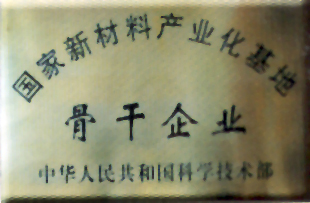 国家新材料产业化基地
骨干企业
中华人民共和国科学技术部